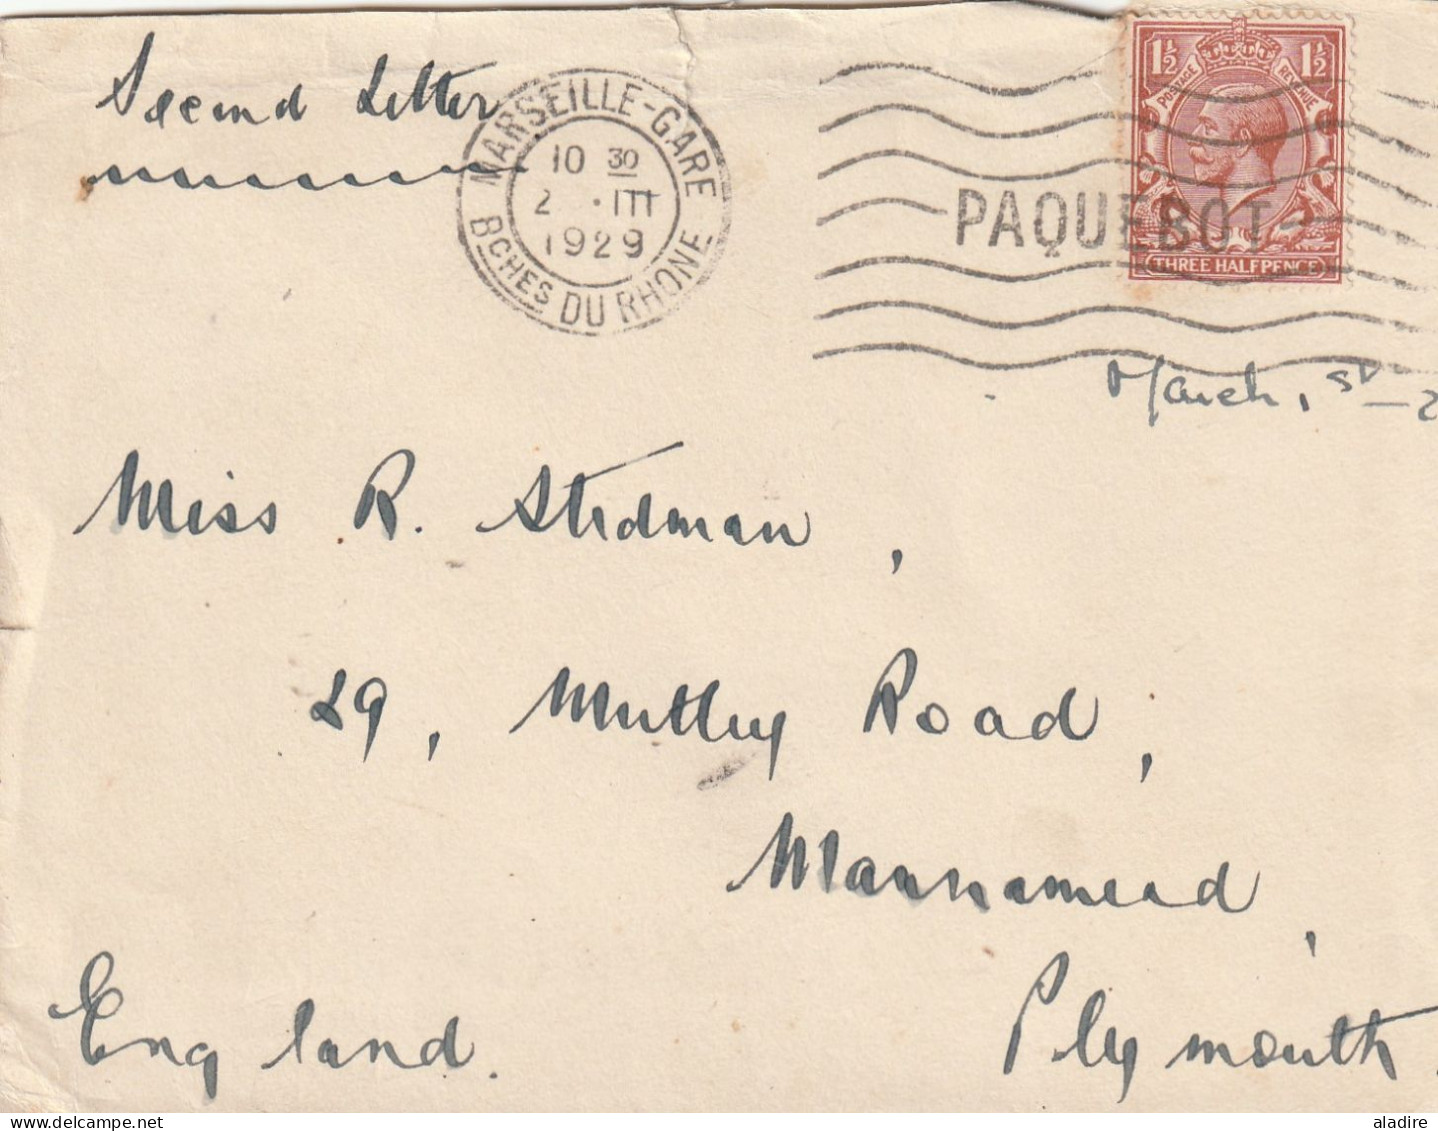 Second Letter
MARSEILLE-GARE
10 30
2 · III
1929
BCHES DU RHONE
PAQUEBOT
1½ 1½
POSTAGE REVENUE
THREE HALFPENCE
March, 
Miss R. Stedman,
29, Mutley Road,
Mannamead,
Plymouth.
England.
aladire